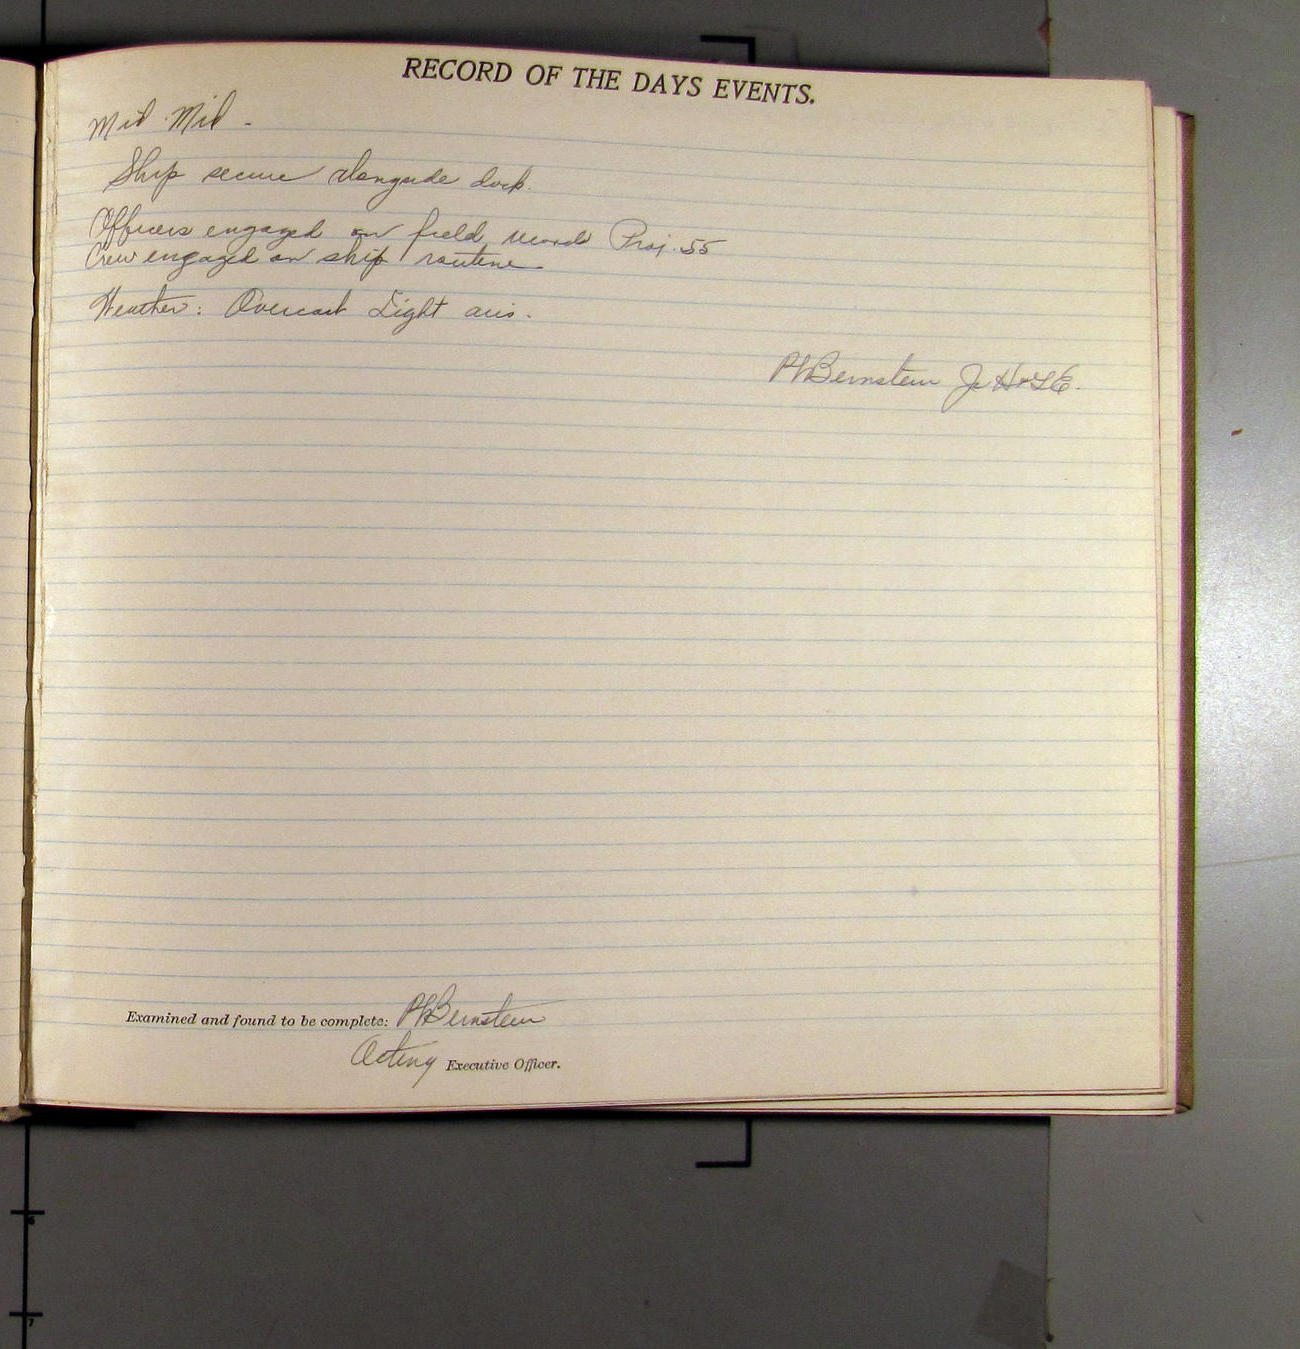 RECORD OF THE DAYS EVENTS.
Mid Mid -
Ship secure alongside dock.
Officers engaged on field records Proj. 55
Crew engaged on ship routine.
Weather: Overcast Light airs.
PABernstein Jr H&GE.
Examined and found to be complete: PABernstein
Acting Executive Officer.
6
7